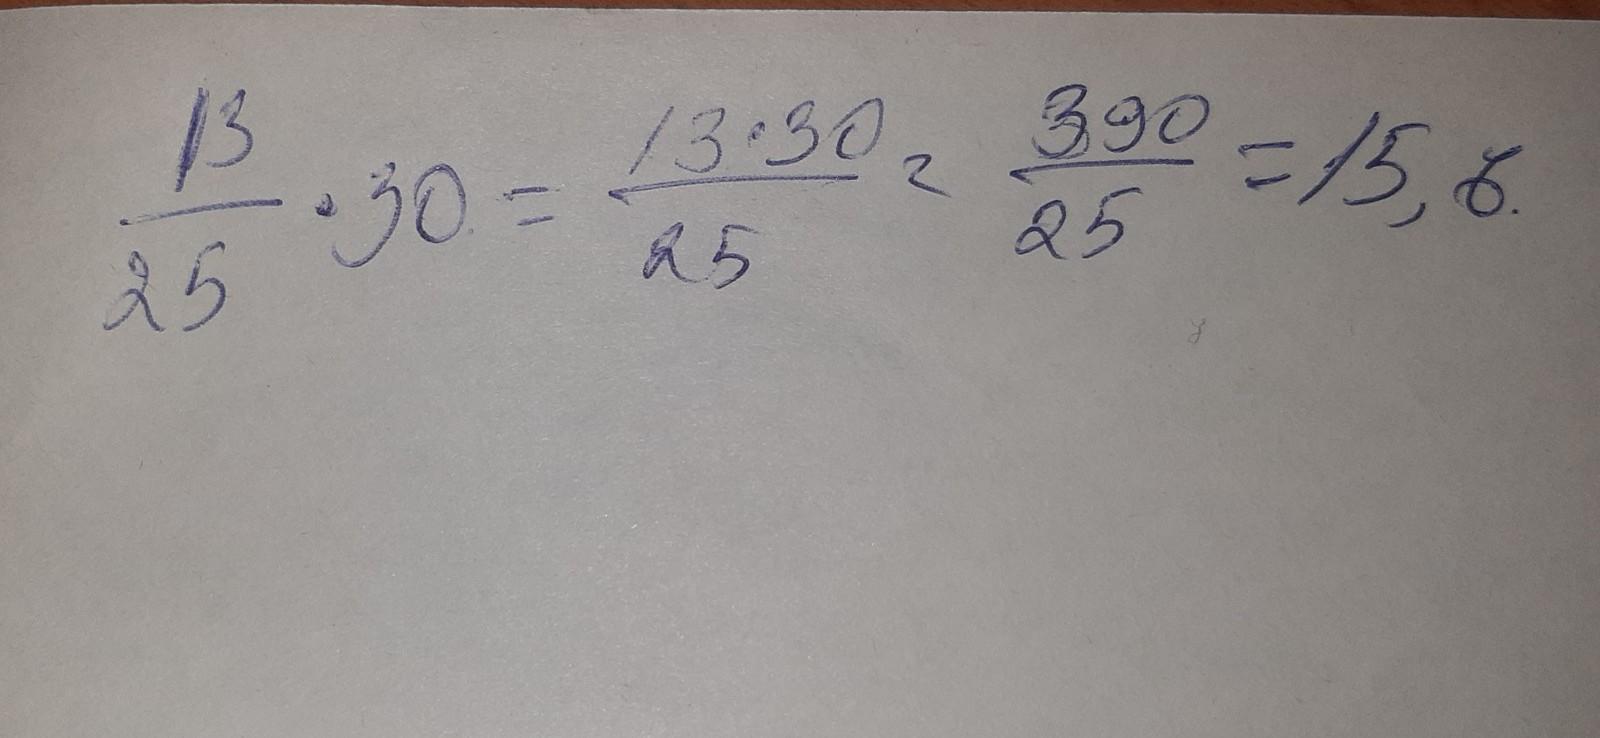 13/25 · 30 = 13·30/25 = 390/25 = 15,6.